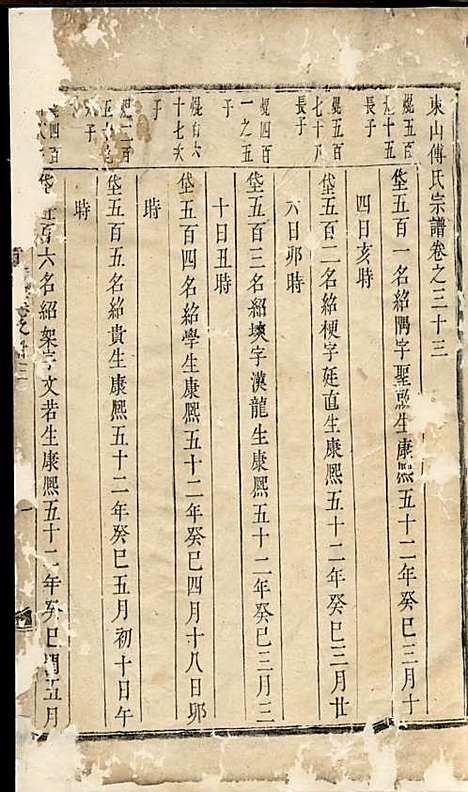 東山傅氏宗譜卷之三十三
焜五百
九十五
子
垈五百一名紹隅字聖烈生康熙五十二年癸巳三月十
四日亥時
焜五百
七十八
長子
垈五百二名紹梗字廷直生康熙五十二年癸巳三月廿
六日卯時
焜四百
一之五
子
垈五百三名紹塽字漢龍生康熙五十二年癸巳三月三
十日丑時
焜百六
十七次
子
垈五百四名紹學生康熙五十二年癸巳四月十八日卯
時
焜二百
子
垈五百五名紹貴生康熙五十二年癸巳五月初十日午
時
四百
垈五百六名紹架字文若生康熙五十二年癸巳閏五月